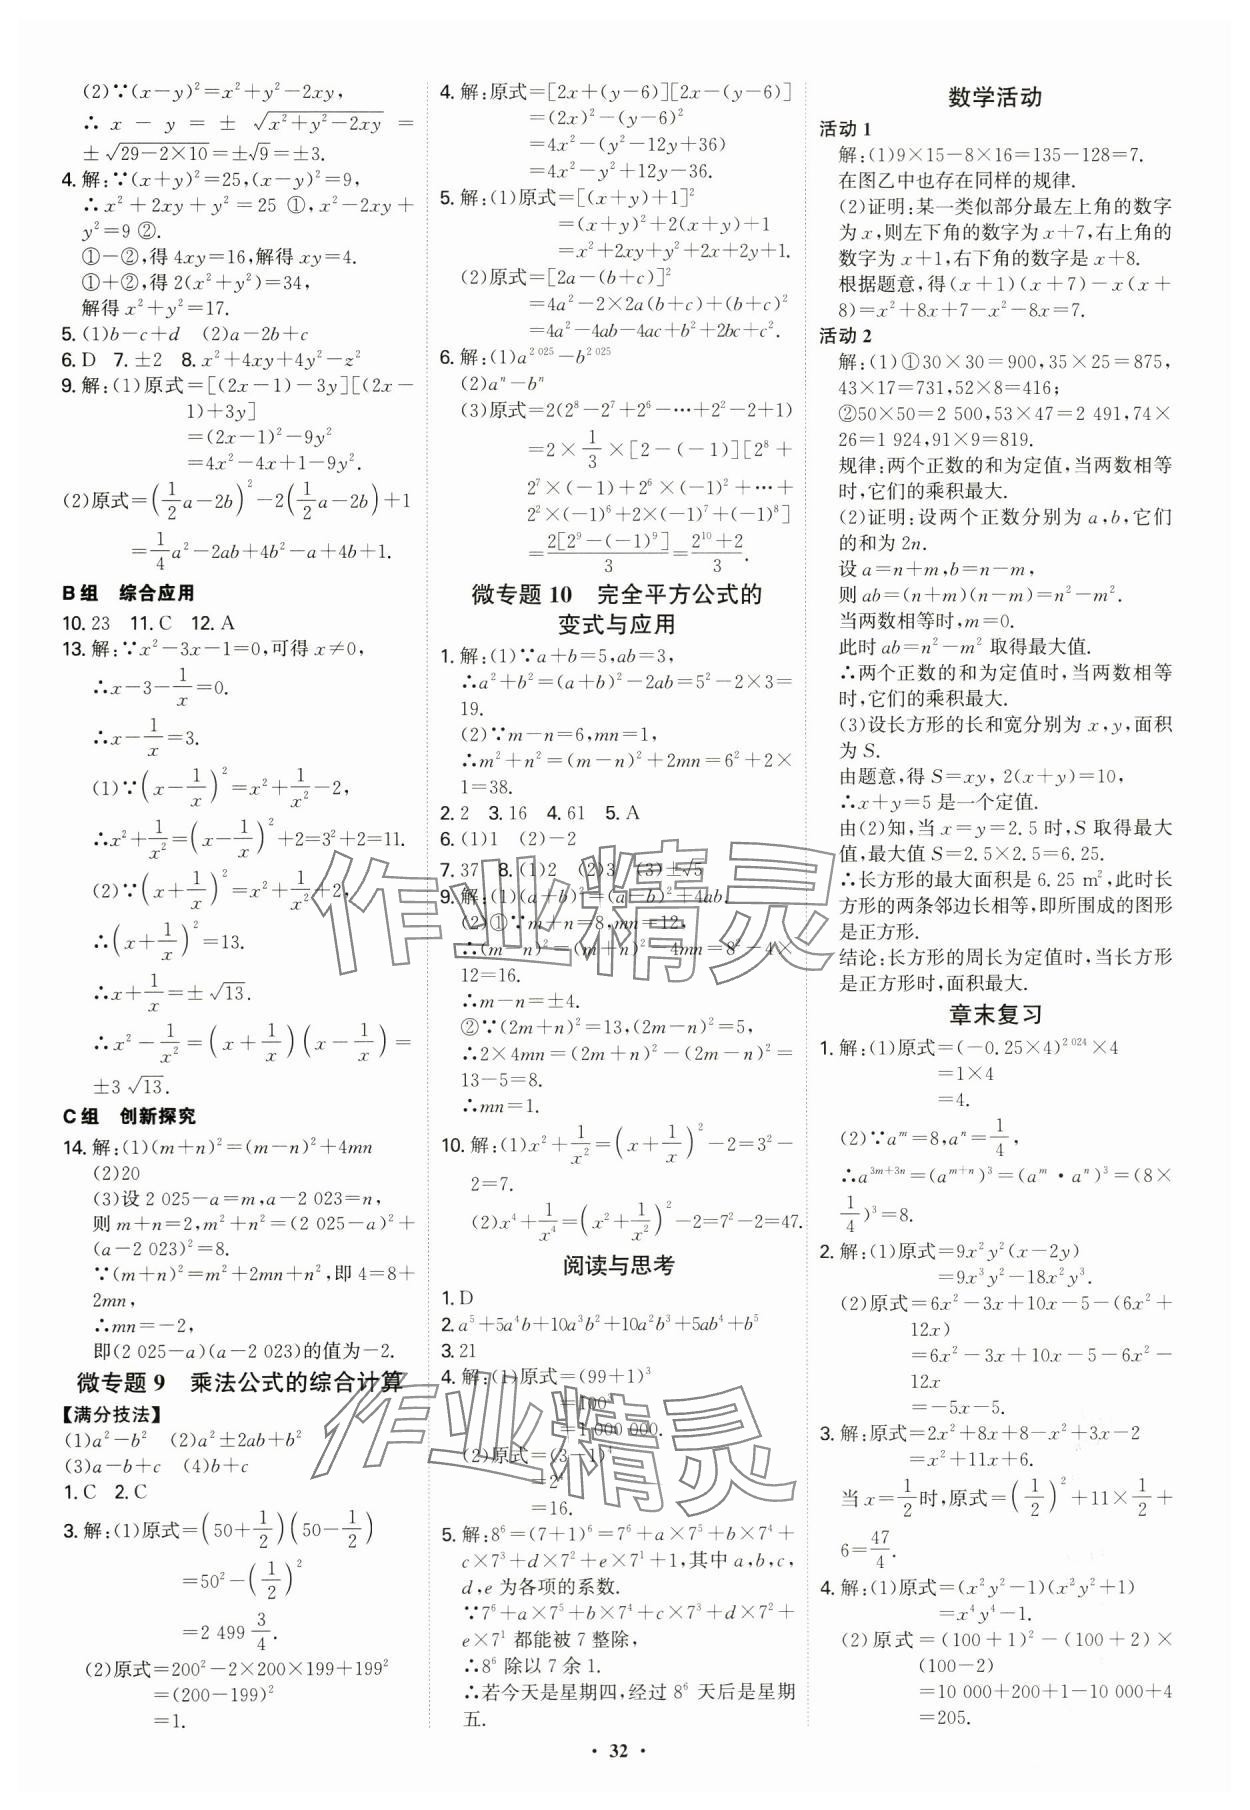 (2)∵(x－y)²＝x²＋y²－2xy,
∴ x － y ＝ ± √(x²＋y²－2xy) ＝
±√(29－2×10)＝±√9＝±3.
4. 解:∵(x＋y)²＝25,(x－y)²＝9,
∴x²＋2xy＋y²＝25 ①,x²－2xy＋
y²＝9 ②.
①－②,得 4xy＝16,解得 xy＝4.
①＋②,得 2(x²＋y²)＝34,
解得 x²＋y²＝17.
5. (1)b－c＋d (2)a－2b＋c
6. D 7. ±2 8. x²＋4xy＋4y²－z²
9. 解:(1)原式＝[(2x－1)－3y][(2x－
1)＋3y]
＝(2x－1)²－9y²
＝4x²－4x＋1－9y².
(2)原式＝(1/2 a－2b)²－2(1/2 a－2b)＋1
＝1/4 a²－2ab＋4b²－a＋4b＋1.
B组 综合应用
10. 23 11. C 12. A
13. 解:∵x²－3x－1＝0,可得 x≠0,
∴x－3－1/x＝0.
∴x－1/x＝3.
(1)∵(x－1/x)²＝x²＋1/x²－2,
∴x²＋1/x²＝(x－1/x)²＋2＝3²＋2＝11.
(2)∵(x＋1/x)²＝x²＋1/x²＋2,
∴(x＋1/x)²＝13.
∴x＋1/x＝±√13.
∴x²－1/x²＝(x＋1/x)(x－1/x)＝
±3√13.
C组 创新探究
14. 解:(1)(m＋n)²＝(m－n)²＋4mn
(2)20
(3)设 2 025－a＝m,a－2 023＝n,
则 m＋n＝2,m²＋n²＝(2 025－a)²＋
(a－2 023)²＝8.
∵(m＋n)²＝m²＋2mn＋n²,即 4＝8＋
2mn,
∴mn＝－2,
即(2 025－a)(a－2 023)的值为－2.
微专题 9 乘法公式的综合计算
【满分技法】
(1)a²－b² (2)a²±2ab＋b²
(3)a－b＋c (4)b＋c
1. C 2. C
3. 解:(1)原式＝(50＋1/2)(50－1/2)
＝50²－(1/2)²
＝2 499 3/4.
(2)原式＝200²－2×200×199＋199²
＝(200－199)²
＝1.
4. 解:原式＝[2x＋(y－6)][2x－(y－6)]
＝(2x)²－(y－6)²
＝4x²－(y²－12y＋36)
＝4x²－y²＋12y－36.
5. 解:(1)原式＝[(x＋y)＋1]²
＝(x＋y)²＋2(x＋y)＋1
＝x²＋2xy＋y²＋2x＋2y＋1.
(2)原式＝[2a－(b＋c)]²
＝4a²－2×2a(b＋c)＋(b＋c)²
＝4a²－4ab－4ac＋b²＋2bc＋c².
6. 解:(1)a^2 025－b^2 025
(2)aⁿ－bⁿ
(3)原式＝2(2⁸－2⁷＋2⁶－…＋2²－2＋1)
＝2×1/3×[2－(－1)][2⁸＋
2⁷×(－1)＋2⁶×(－1)²＋…＋
2²×(－1)⁶＋2×(－1)⁷＋(－1)⁸]
＝2[2⁹－(－1)⁹]/3＝(2¹⁰＋2)/3.
微专题 10 完全平方公式的
变式与应用
1. 解:(1)∵a＋b＝5,ab＝3,
∴a²＋b²＝(a＋b)²－2ab＝5²－2×3＝
19.
(2)∵m－n＝6,mn＝1,
∴m²＋n²＝(m－n)²＋2mn＝6²＋2×
1＝38.
2. 2 3. 16 4. 61 5. A
6. (1)1 (2)－2
7. 37 8. (1)2 (2)3 (3)±√5
9. 解:(1)(a＋b)²＝(a－b)²＋4ab.
(2)①∵m＋n＝8,mn＝12,
∴(m－n)²＝(m＋n)²－4mn＝8²－4×
12＝16.
∴m－n＝±4.
②∵(2m＋n)²＝13,(2m－n)²＝5,
∴2×4mn＝(2m＋n)²－(2m－n)²＝
13－5＝8.
∴mn＝1.
10. 解:(1)x²＋1/x²＝(x＋1/x)²－2＝3²－
2＝7.
(2)x⁴＋1/x⁴＝(x²＋1/x²)²－2＝7²－2＝47.
阅读与思考
1. D
2. a⁵＋5a⁴b＋10a³b²＋10a²b³＋5ab⁴＋b⁵
3. 21
4. 解:(1)原式＝(99＋1)³
＝100³
＝1 000 000.
(2)原式＝(3－1)⁴
＝2⁴
＝16.
5. 解:8⁶＝(7＋1)⁶＝7⁶＋a×7⁵＋b×7⁴＋
c×7³＋d×7²＋e×7¹＋1,其中 a,b,c,
d,e 为各项的系数.
∵7⁶＋a×7⁵＋b×7⁴＋c×7³＋d×7²＋
e×7¹ 都能被 7 整除,
∴8⁶ 除以 7 余 1.
∴若今天是星期四,经过 8⁶ 天后是星期
五.
数学活动
活动 1
解:(1)9×15－8×16＝135－128＝7.
在图乙中也存在同样的规律.
(2)证明:某一类似部分最左上角的数字
为 x,则左下角的数字为 x＋7,右上角的
数字为 x＋1,右下角的数字是 x＋8.
根据题意,得(x＋1)(x＋7)－x(x＋
8)＝x²＋8x＋7－x²－8x＝7.
活动 2
解:(1)①30×30＝900,35×25＝875,
43×17＝731,52×8＝416;
②50×50＝2 500,53×47＝2 491,74×
26＝1 924,91×9＝819.
规律:两个正数的和为定值,当两数相等
时,它们的乘积最大.
(2)证明:设两个正数分别为 a,b,它们
的和为 2n.
设 a＝n＋m,b＝n－m,
则 ab＝(n＋m)(n－m)＝n²－m².
当两数相等时,m＝0.
此时 ab＝n²－m² 取得最大值.
∴两个正数的和为定值时,当两数相等
时,它们的乘积最大.
(3)设长方形的长和宽分别为 x,y,面积
为 S.
由题意,得 S＝xy, 2(x＋y)＝10,
∴x＋y＝5 是一个定值.
由(2)知,当 x＝y＝2.5 时,S 取得最大
值,最大值 S＝2.5×2.5＝6.25.
∴长方形的最大面积是 6.25 m²,此时长
方形的两条邻边长相等,即所围成的图形
是正方形.
结论:长方形的周长为定值时,当长方形
是正方形时,面积最大.
章末复习
1. 解:(1)原式＝(－0.25×4)^2 024×4
＝1×4
＝4.
(2)∵aᵐ＝8,aⁿ＝1/4,
∴a³ᵐ⁺³ⁿ＝(aᵐ⁺ⁿ)³＝(aᵐ·aⁿ)³＝(8×
1/4)³＝8.
2. 解:(1)原式＝9x²y²(x－2y)
＝9x³y²－18x²y³.
(2)原式＝6x²－3x＋10x－5－(6x²＋
12x)
＝6x²－3x＋10x－5－6x²－
12x
＝－5x－5.
3. 解:原式＝2x²＋8x＋8－x²＋3x－2
＝x²＋11x＋6.
当 x＝1/2时,原式＝(1/2)²＋11×1/2＋
6＝47/4.
4. 解:(1)原式＝(x²y²－1)(x²y²＋1)
＝x⁴y⁴－1.
(2)原式＝(100＋1)²－(100＋2)×
(100－2)
＝10 000＋200＋1－10 000＋4
＝205.
· 32 ·
作业精灵
作业精灵